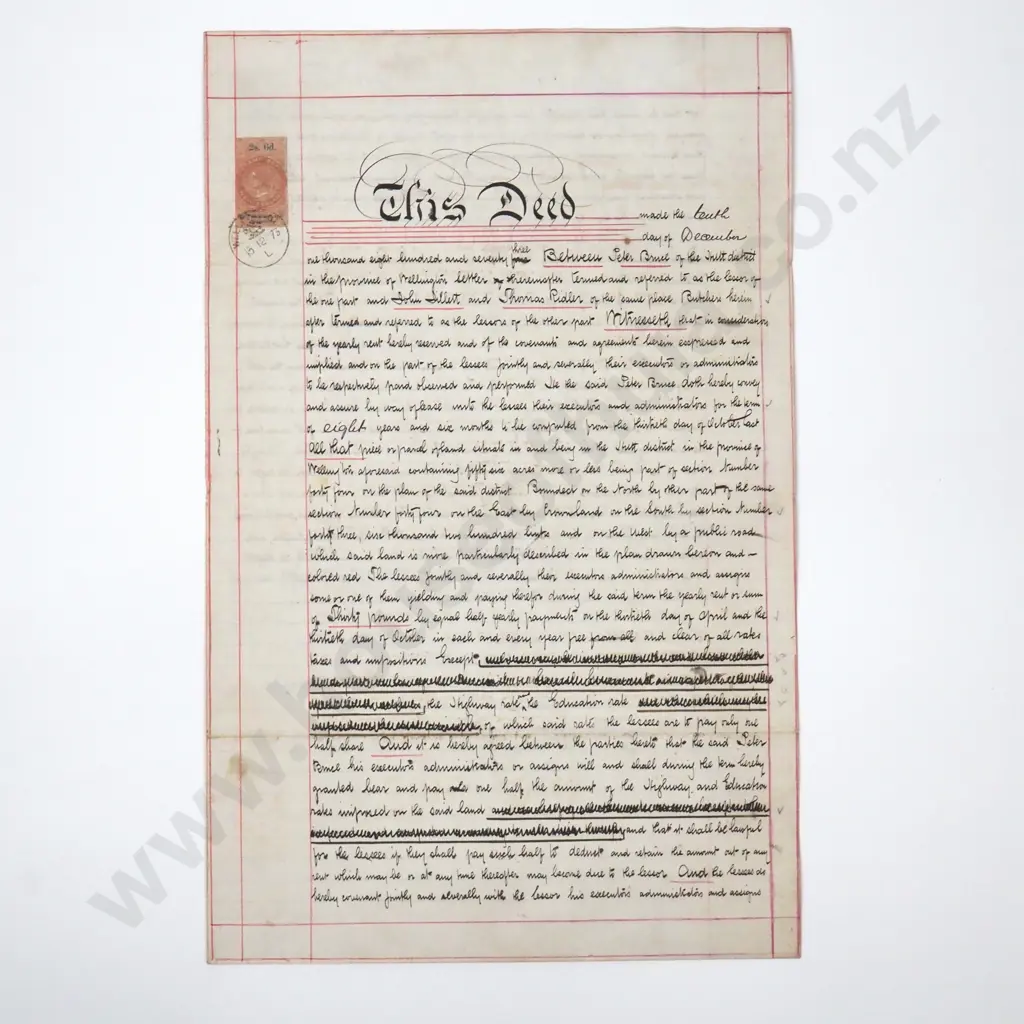 2s. 6d.
This Deed made the tenth
day of December
one thousand eight hundred and seventy three Between Peter Bruce of the Hutt district
in the province of Wellington settler hereinafter termed and referred to as the lessor of
the one part and John Jillett and Thomas Ridler of the same place Butchers herein
after termed and referred to as the lessees of the other part Witnesseth that in consideration
of the yearly rent hereby reserved and of the covenants and agreements herein expressed and
implied and on the part of the lessees jointly and severally their executors or administrators
to be respectively paid observed and performed He the said Peter Bruce doth hereby convey
and assure by way of lease unto the lessees their executors and administrators for the term
of eight years and six months to be computed from the thirtieth day of October last
All that piece or parcel of land situate in and being in the Hutt district in the province of
Wellington aforesaid containing fifty six acres more or less being part of section Number
forty four on the plan of the said district Bounded on the North by other part of the same
section Number forty four on the East by Crown land on the South by section Number
forty three, six thousand two hundred links and on the West by a public road
which said land is more particularly described in the plan drawn hereon and
colored red The lessees jointly and severally their executors administrators and assigns
some or one of them yielding and paying therefor during the said term the yearly rent or sum
of Thirty pounds by equal half yearly payments on the thirtieth day of April and the
thirtieth day of October in each and every year free from all and clear of all rates
taxes and impositions Except
the Highway rate the Education rate
of which said rates the lessees are to pay only one
half share And it is hereby agreed between the parties hereto that the said Peter
Bruce his executors administrators or assigns will and shall during the term hereby
granted bear and pay one half the amount of the Highway and Education
rates imposed on the said land
and that it shall be lawful
for the lessees if they shall pay such half to deduct and retain the amount out of any
rent which may be or at any time thereafter may become due to the lessor And the lessees do
hereby covenant jointly and severally with the lessor his executors administrators and assigns